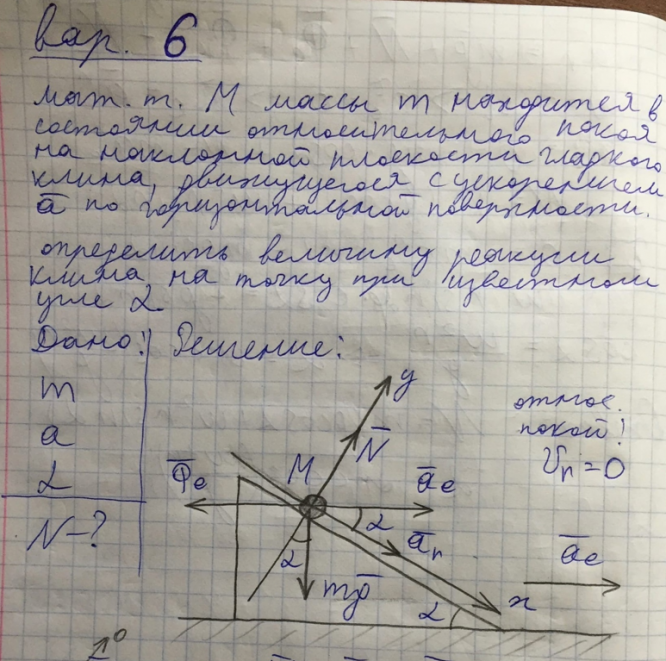 вар. 6
мат. т. М массы m находится в
состоянии относительного покоя
на наклонной плоскости гладкого
клина, движущегося с ускорением
a̅ по горизонтальной поверхности.
определить величину реакции
клина на точку при известном
угле α
Дано: Решение:
m
a
α
N-?
y
N̅
M
Φ̅e
a̅e
α
a̅r
α
mg̅
α
x
относ.
покой!
Vr=0
a̅e